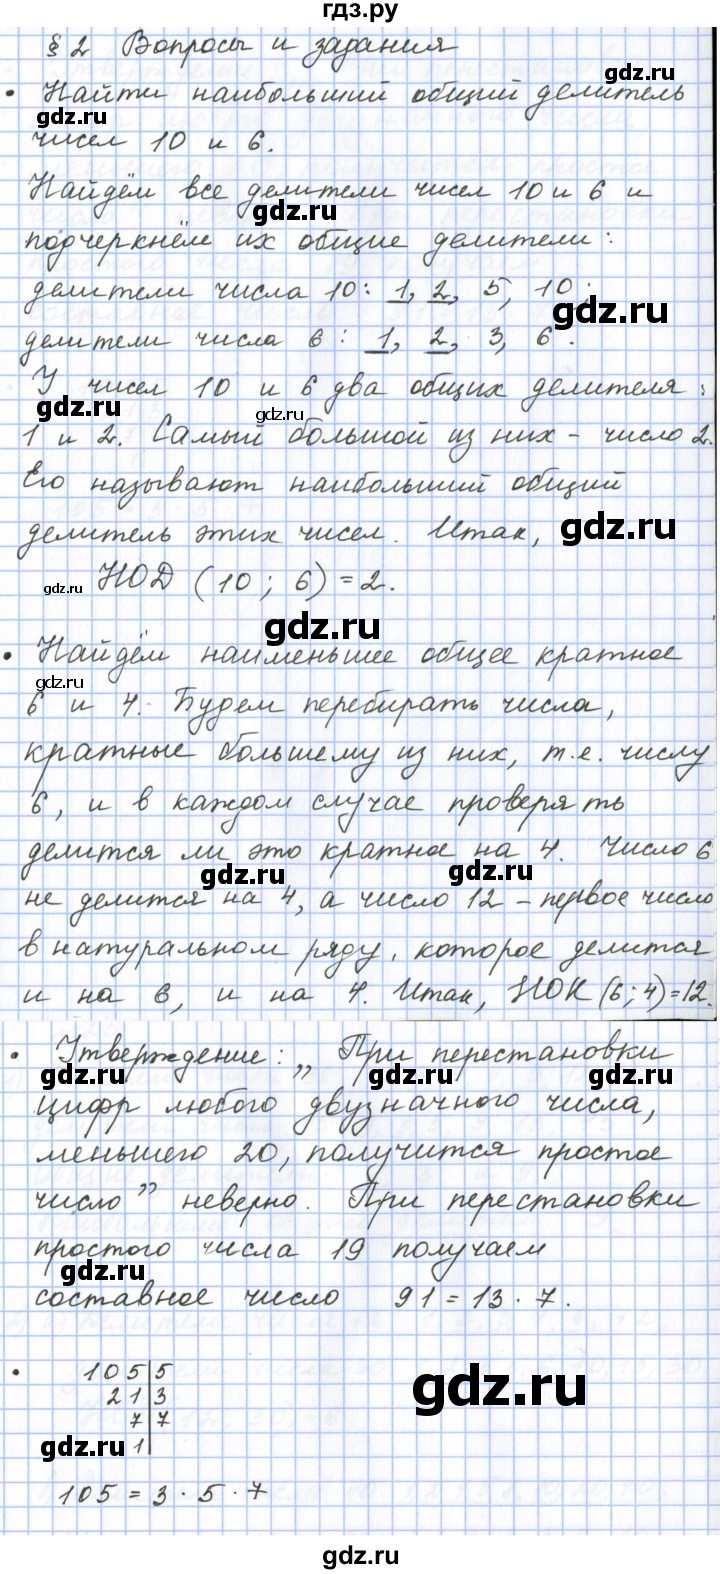 гдз.ру
§ 2 Вопросы и задания
gdz.ru
• Найти наибольший общий делитель
gdz.ru
чисел 10 и 6.
Найдём все делители чисел 10 и 6 и
gdz.ru
подчеркнём их общие делители:
делители числа 10: 1, 2, 5, 10;
gdz.ru
делители числа 6: 1, 2, 3, 6.
У чисел 10 и 6 два общих делителя:
gdz.ru gdz.ru
1 и 2. Самый большой из них - число 2.
Его называют наибольший общий
делитель этих чисел. Итак,
gdz.ru
НОД (10; 6) = 2.
gdz.ru
gdz.ru
• Найдём наименьшее общее кратное
gdz.ru
6 и 4. Будем перебирать числа,
кратные большему из них, т.е. числу
6, и в каждом случае проверять
делится ли это кратное на 4. Число 6
gdz.ru gdz.ru
не делится на 4, а число 12 - первое число
в натуральном ряду, которое делится
и на 6, и на 4. Итак, НОК (6; 4) = 12.
• Утверждение: „При перестановки
gdz.ru gdz.ru gdz.ru
цифр любого двузначного числа,
меньшего 20, получится простое
число” неверно. При перестановки
простого числа 19 получаем
gdz.ru
составное число 91 = 13 · 7.
• 105|5
21|3
gdz.ru
7|7
gdz.ru 1|
105 = 3 · 5 · 7
gdz.ru